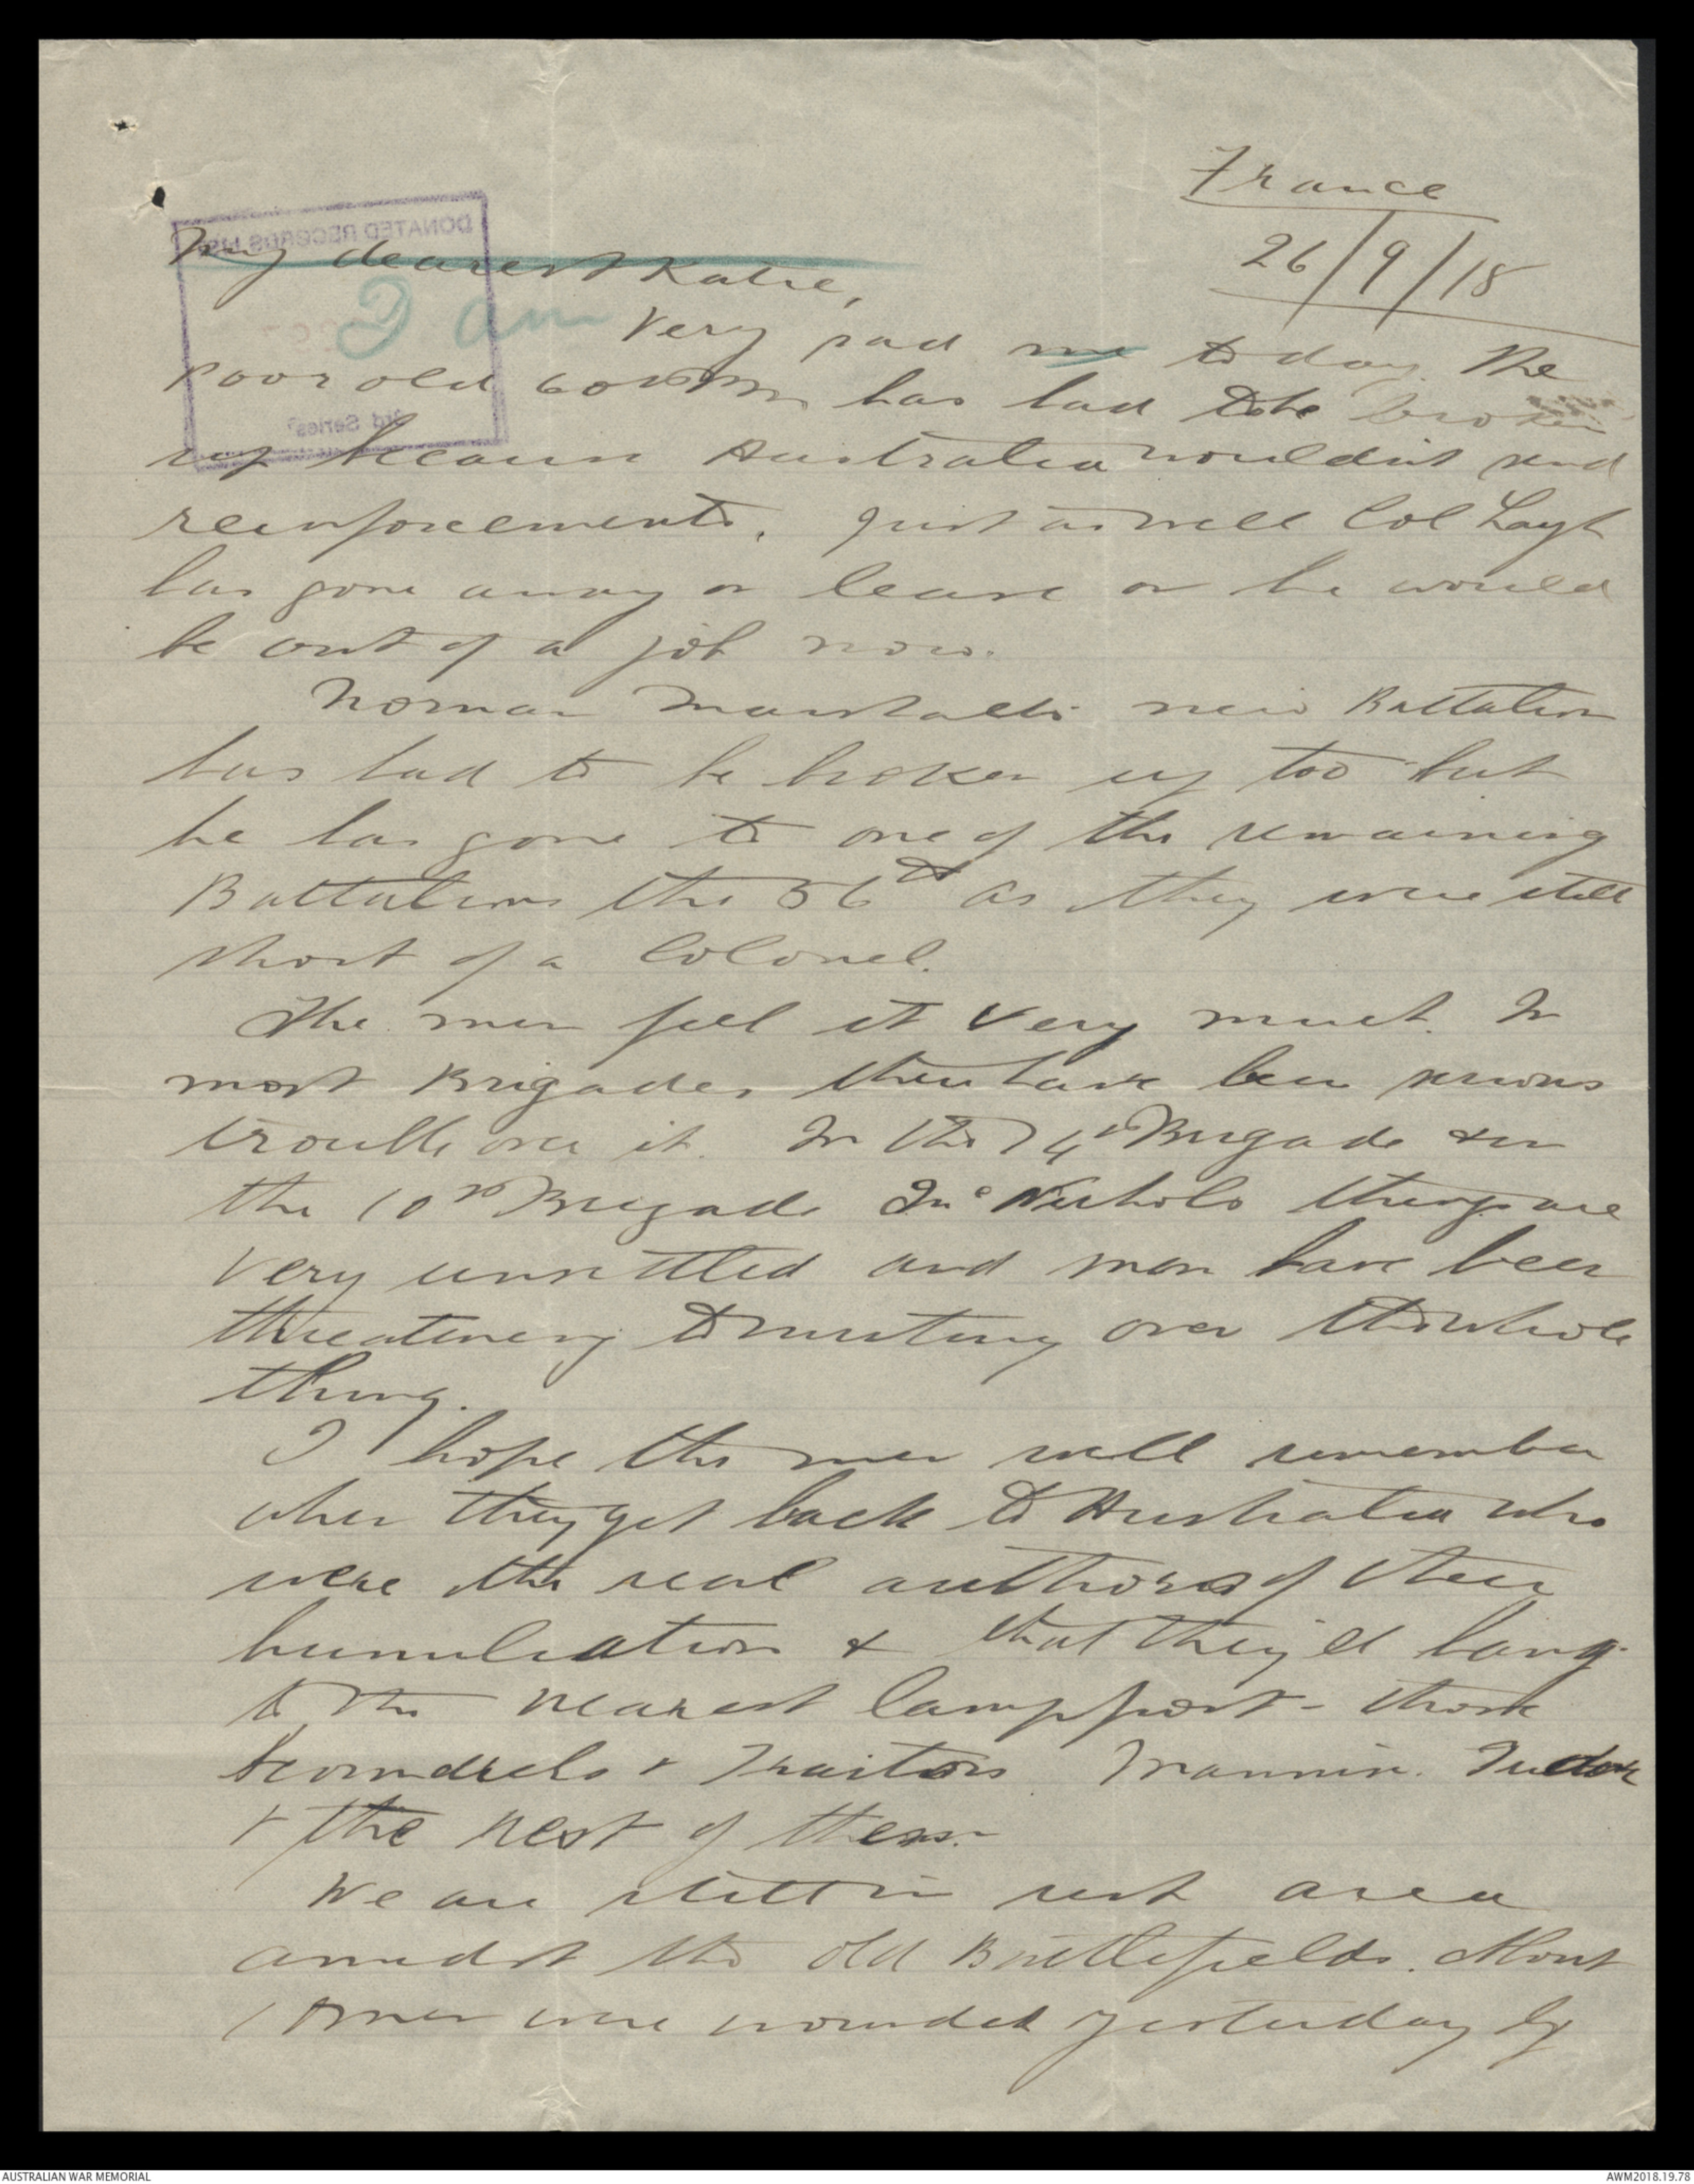 France
26/9/18
DONATED RECORDS LIST
My dearest Katie,
I am Very sad me to day. The
Poor old 60th Bn has had to be broken
3rd Series
up because Australia wouldn't send
reinforcements. Just as well Col Layh
has gone away on leave or he would
be out of a job now.
Norman Marshall's new Battalion
has had to be broken up too but
he has gone to one of the remaining
Battalions the 56th as they were still
short of a Colonel.
The men feel it very much. In
most Brigades there have been serious
trouble over it. In the 14th Brigade & in
the 10th Brigade McNichols things are
very unsettled and men have been
threatening to mutiny over the whole
thing.
I hope the men will remember
when they get back to Australia who
were the real authors of their
humiliation & that they'll hang
to the nearest lamp post - those
Scoundrels & Traitors Mannix. Tudor
& the rest of them.
We are still in rest area
amidst the old Battlefields. About
10 men were wounded yesterday by
AUSTRALIAN WAR MEMORIAL
AWM2018.19.78